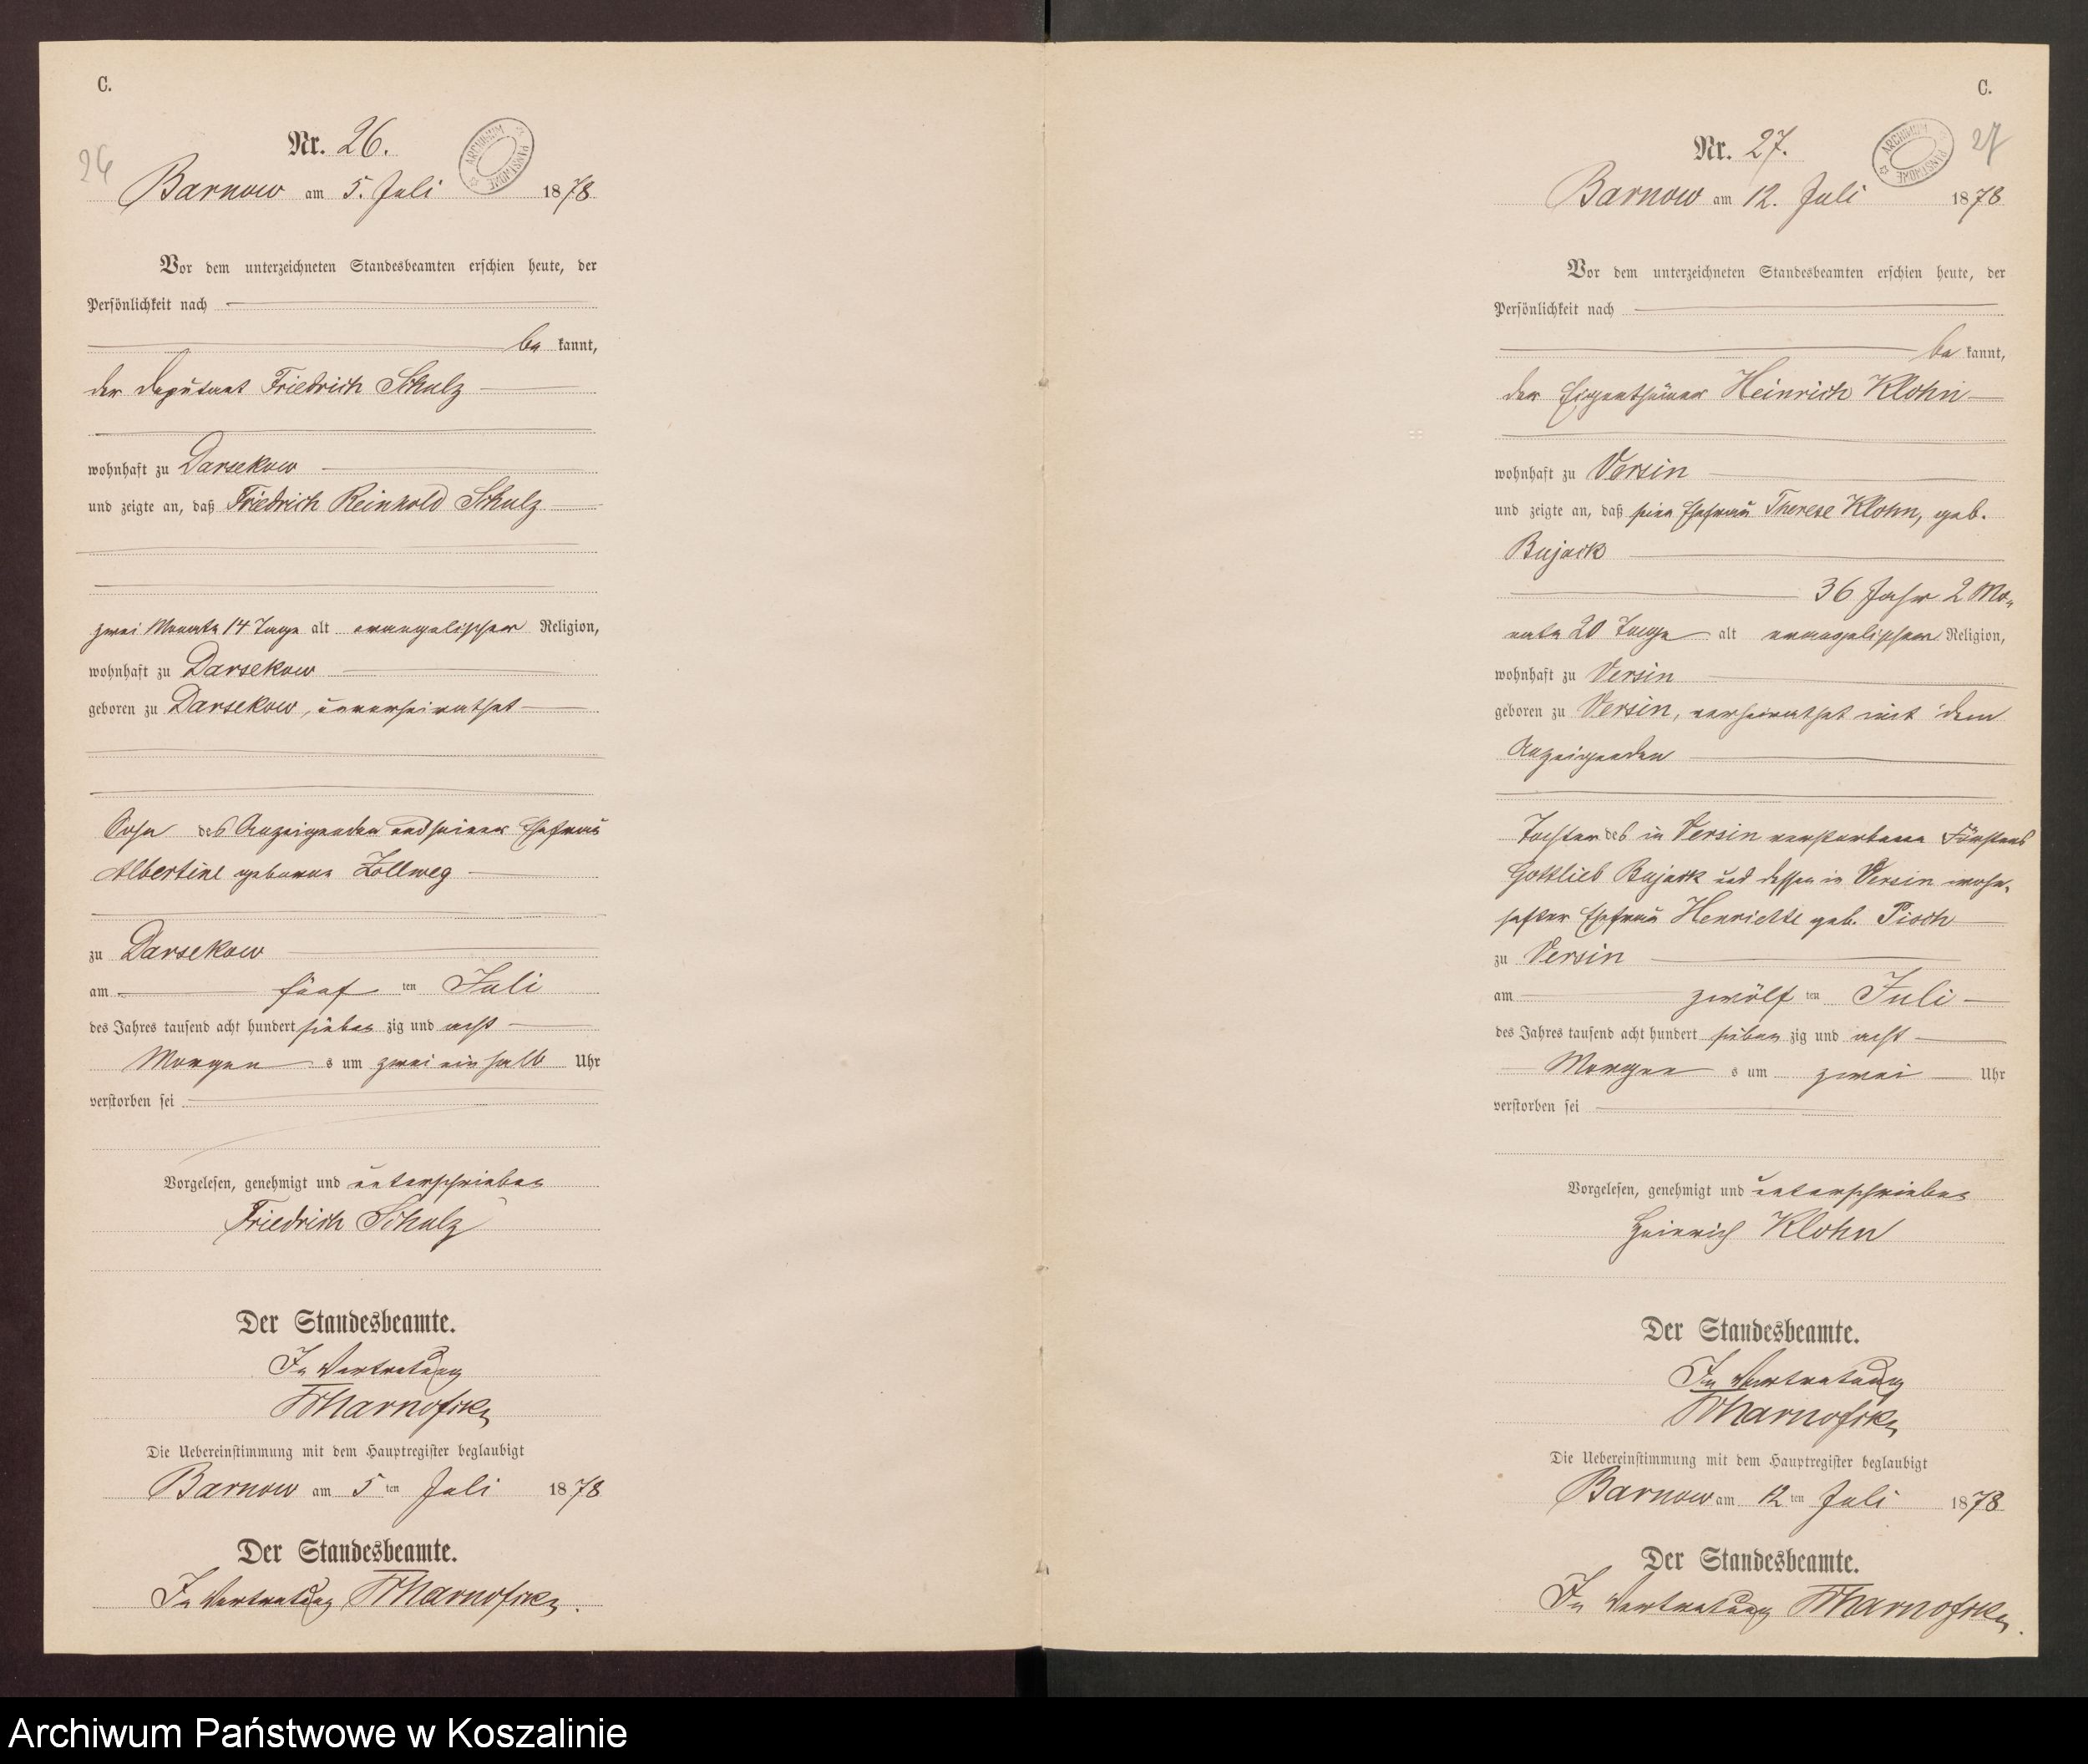 C.
26
Nr. 26.
ARCHIWUM PAŃSTWOWE
Barnow am 5. Juli 1878
Vor dem unterzeichneten Standesbeamten erschien heute, der
Persönlichkeit nach
be kannt,
der Deputant Friedrich Schulz
wohnhaft zu Darsekow
und zeigte an, daß Friedrich Reinhold Schulz
zwei Monate 14 Tage alt evangelischer Religion,
wohnhaft zu Darsekow
geboren zu Darsekow, unverheirathet
Sohn des Anzeigenden und seiner Ehefrau
Albertine geborne Zollweg
zu Darsekow
am fünf ten Juli
des Jahres tausend acht hundert sieben zig und acht
Morgen s um zwei ein halb Uhr
verstorben sei
Vorgelesen, genehmigt und unterschrieben
Friedrich Schulz
Der Standesbeamte.
In Vertretung
Die Uebereinstimmung mit dem Hauptregister beglaubigt
Barnow am 5 ten Juli 1878
Der Standesbeamte.
In Vertretung
C.
27
Nr. 27.
ARCHIWUM PAŃSTWOWE
Barnow am 12. Juli 1878
Vor dem unterzeichneten Standesbeamten erschien heute, der
Persönlichkeit nach
be kannt,
der Eigenthümer Heinrich Klohn
wohnhaft zu Versin
und zeigte an, daß seine Ehefrau Therese Klohn, geb.
Bujack
36 Jahr 2 Mo-
nate 20 Tage alt evangelischer Religion,
wohnhaft zu Versin
geboren zu Versin, verheirathet mit dem
Anzeigenden
Tochter des in Versin verstorbenen Försters
Gottlieb Bujack und dessen in Versin wohn-
hafter Ehefrau Henriette geb. Pioch
zu Versin
am zwölf ten Juli
des Jahres tausend acht hundert sieben zig und acht
Morgen s um zwei Uhr
verstorben sei
Vorgelesen, genehmigt und unterschrieben
Heinrich Klohn
Der Standesbeamte.
In Vertretung
Die Uebereinstimmung mit dem Hauptregister beglaubigt
Barnow am 12 ten Juli 1878
Der Standesbeamte.
In Vertretung
Archiwum Państwowe w Koszalinie